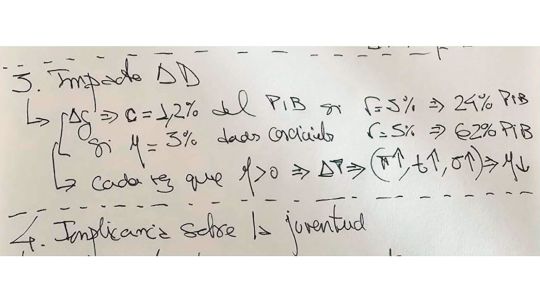 3. Impacto ΔD
↳ Δg ⇒ c = 1,2% del PIB si r=3% ⇒ 24% PIB
si η = 3% dados r=5% ⇒ 62% PIB
↳ cada vez que η>0 ⇒ ⇒ (π↑, t↑, σ↑) ⇒ η↓
4. Implicancia sobre la juventud